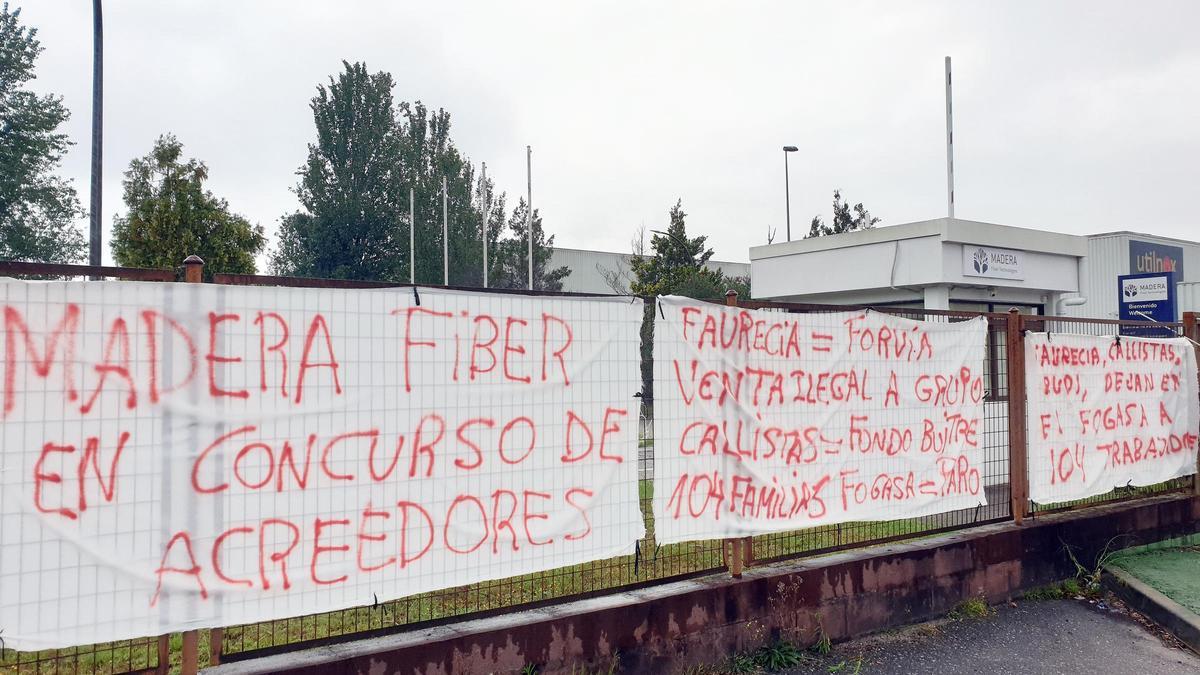 MADERA FIBER
EN CONCURSO DE
ACREEDORES
FAURECIA = FORVIA
VENTA ILEGAL A GRUPO
CALLISTAS = FONDO BUITRE
104 FAMILIAS FOGASA = PARO
AURECIA, CALLISTAS,
DEJAN EN
El FOGASA A
104 TRABAJADORES
MADERA
utilnox
MADERA
Bienvenido
Welcome